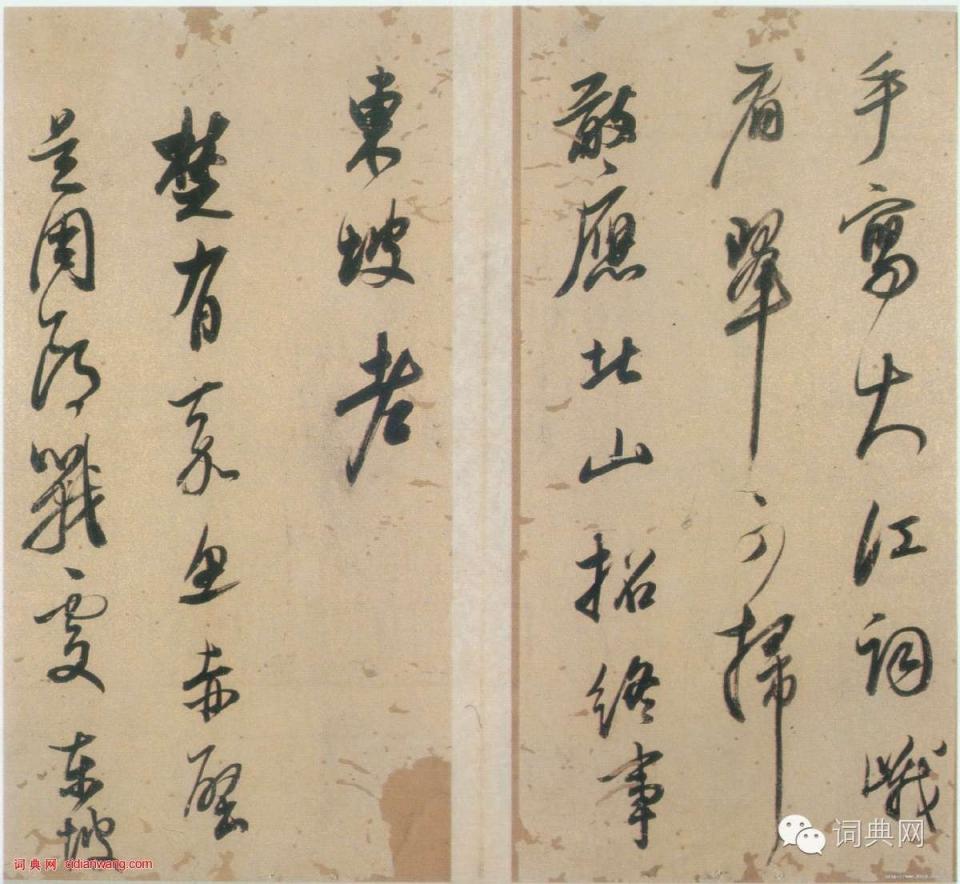 手寫大江詞峨
眉翠可掃
敢應北山招終事
東坡老
楚有嘉魚赤壁
是周郎戰處東坡
词典网 cidianwang.com
词典网